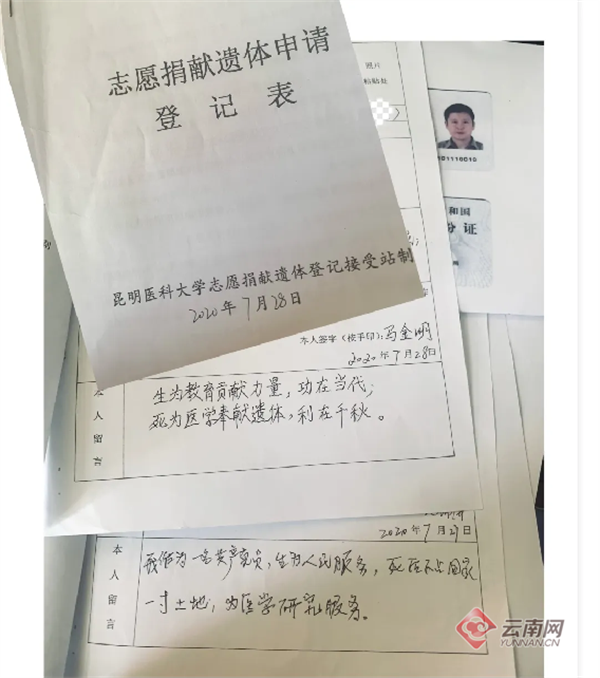 志愿捐献遗体申请
登记表
昆明医科大学志愿捐献遗体登记接受站制
2020年7月28日
照片
粘贴处
和国
份证
本人签字(按手印):马金明
2020年7月28日
本人留言
生为教育贡献力量,功在当代;
死为医学奉献遗体,利在千秋。
2020年7月29日
本人留言
我作为一名共产党员,生为人民服务,死后不占国家
一寸土地,为医学研究服务。
云南网
YUNNAN.CN